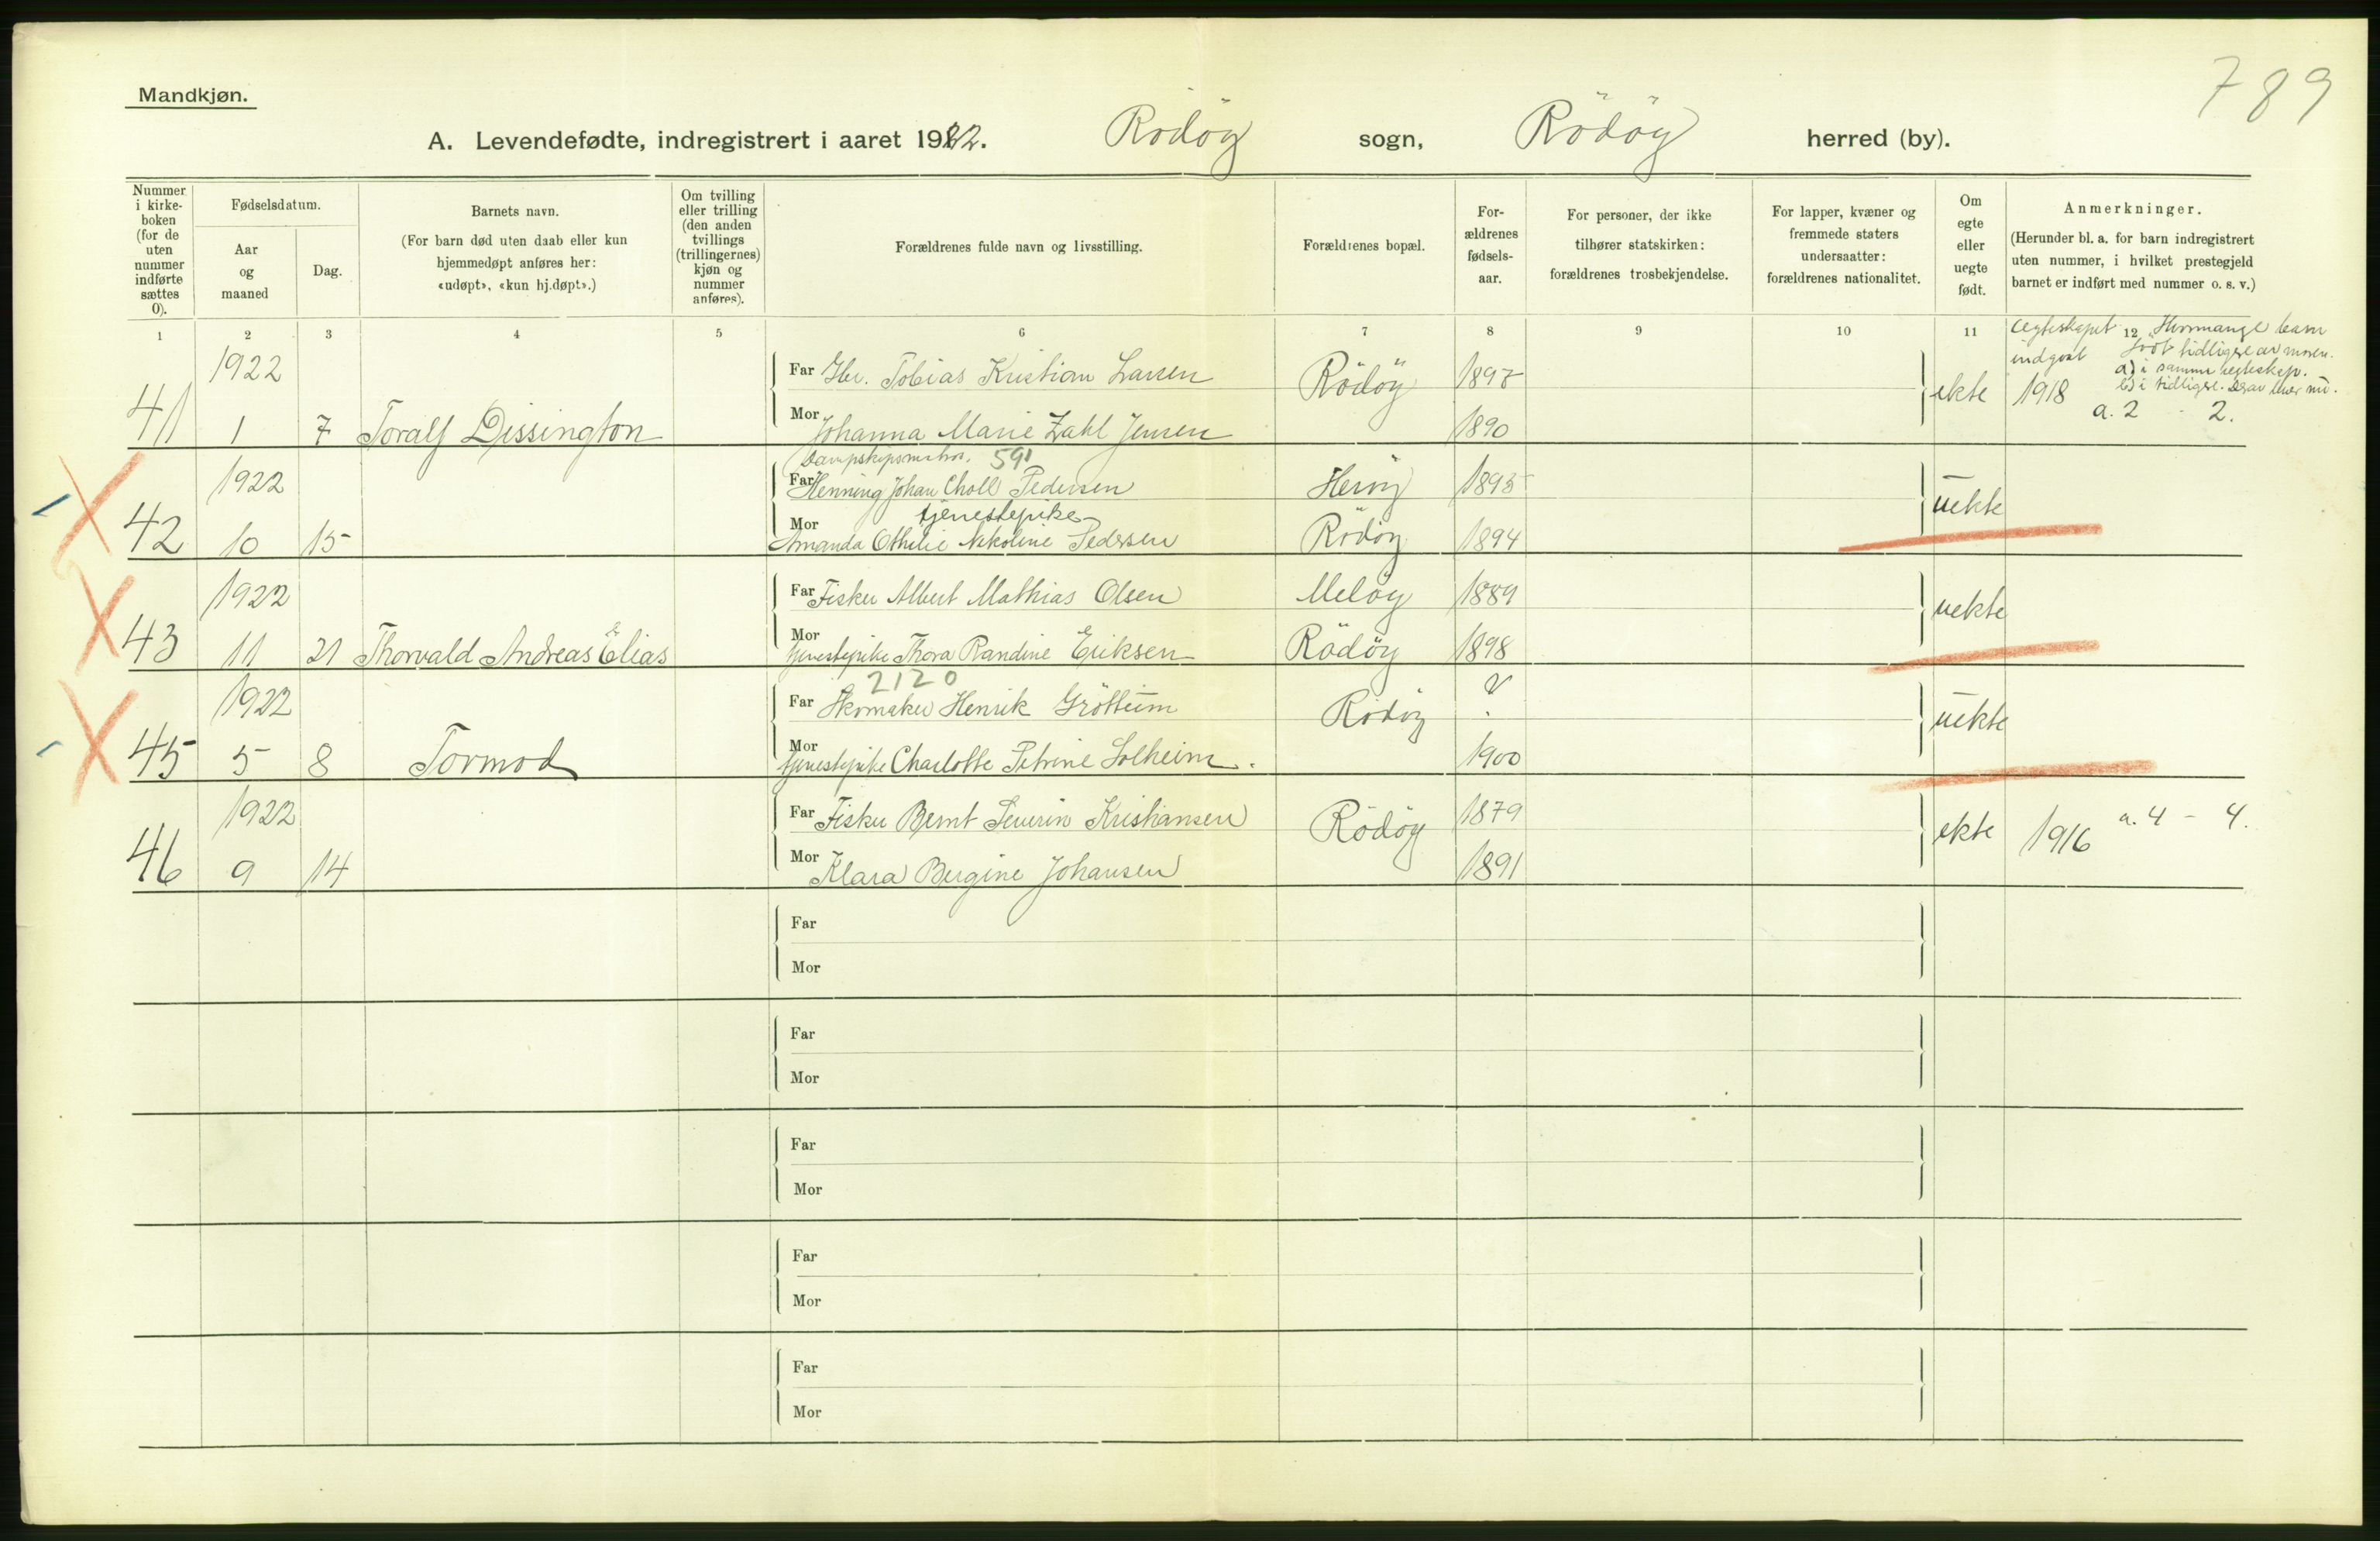 789
Mandkjøn.
A. Levendefødte, indregistrert i aaret 1922. Rödöy sogn, Rödöy herred (by).
Nummer i kirkeboken (for de uten nummer indførte sættes 0).
Fødselsdatum.
Aar og maaned
Dag.
Barnets navn.
(For barn død uten daab eller kun hjemmedøpt anføres her: «udøpt», «kun hj.døpt».)
Om tvilling eller trilling (den anden tvillings (trillingernes) kjøn og nummer anføres).
Forældrenes fulde navn og livsstilling.
Forældrenes bopæl.
Forældrenes fødselsaar.
For personer, der ikke tilhører statskirken: forældrenes trosbekjendelse.
For lapper, kvæner og fremmede staters undersaatter: forældrenes nationalitet.
Om egte eller uegte født.
Anmerkninger.
(Herunder bl. a. for barn indregistrert uten nummer, i hvilket prestegjeld barnet er indført med nummer o. s. v.)
1 2 3 4 5 6 7 8 9 10 11 12
Hvormange barn
født tidligere av moren.
a) i samme egteskap.
b) i tidligere. Derav lever nu.
Egteskapet
indgaat
1922 Far Gbr. Tobias Kristian Larsen Rödöy 1897 ekte 1918 a. 2 - 2.
41 1 7 Toralf Dissington Mor Johanna Marie Zahl Jensen 1890
591
1922 Far Henning Johan Choll Pedersen Heröy 1895 uekte
tjenestepike
42 10 15 Mor Amanda Othelie Nikoline Pedersen Rödöy 1894
1922 Far Fisker Albert Mathias Olsen Melöy 1889 uekte
43 11 21 Thorvald Andreas Elias Mor tjenestepike Thora Randine Eriksen Rödöy 1898
2120
1922 Far Skomaker Henrik Gröttum Rödöy ? uekte
45 5 8 Tormod Mor tjenestepike Charlotte Petrine Solheim. 1900
1922 Far Fisker Bernt Severin Kristiansen Rödöy 1879 ekte 1916 a. 4 - 4.
46 9 14 Mor Klara Bergine Johansen 1891
Far
Mor
Far
Mor
Far
Mor
Far
Mor
Far
Mor